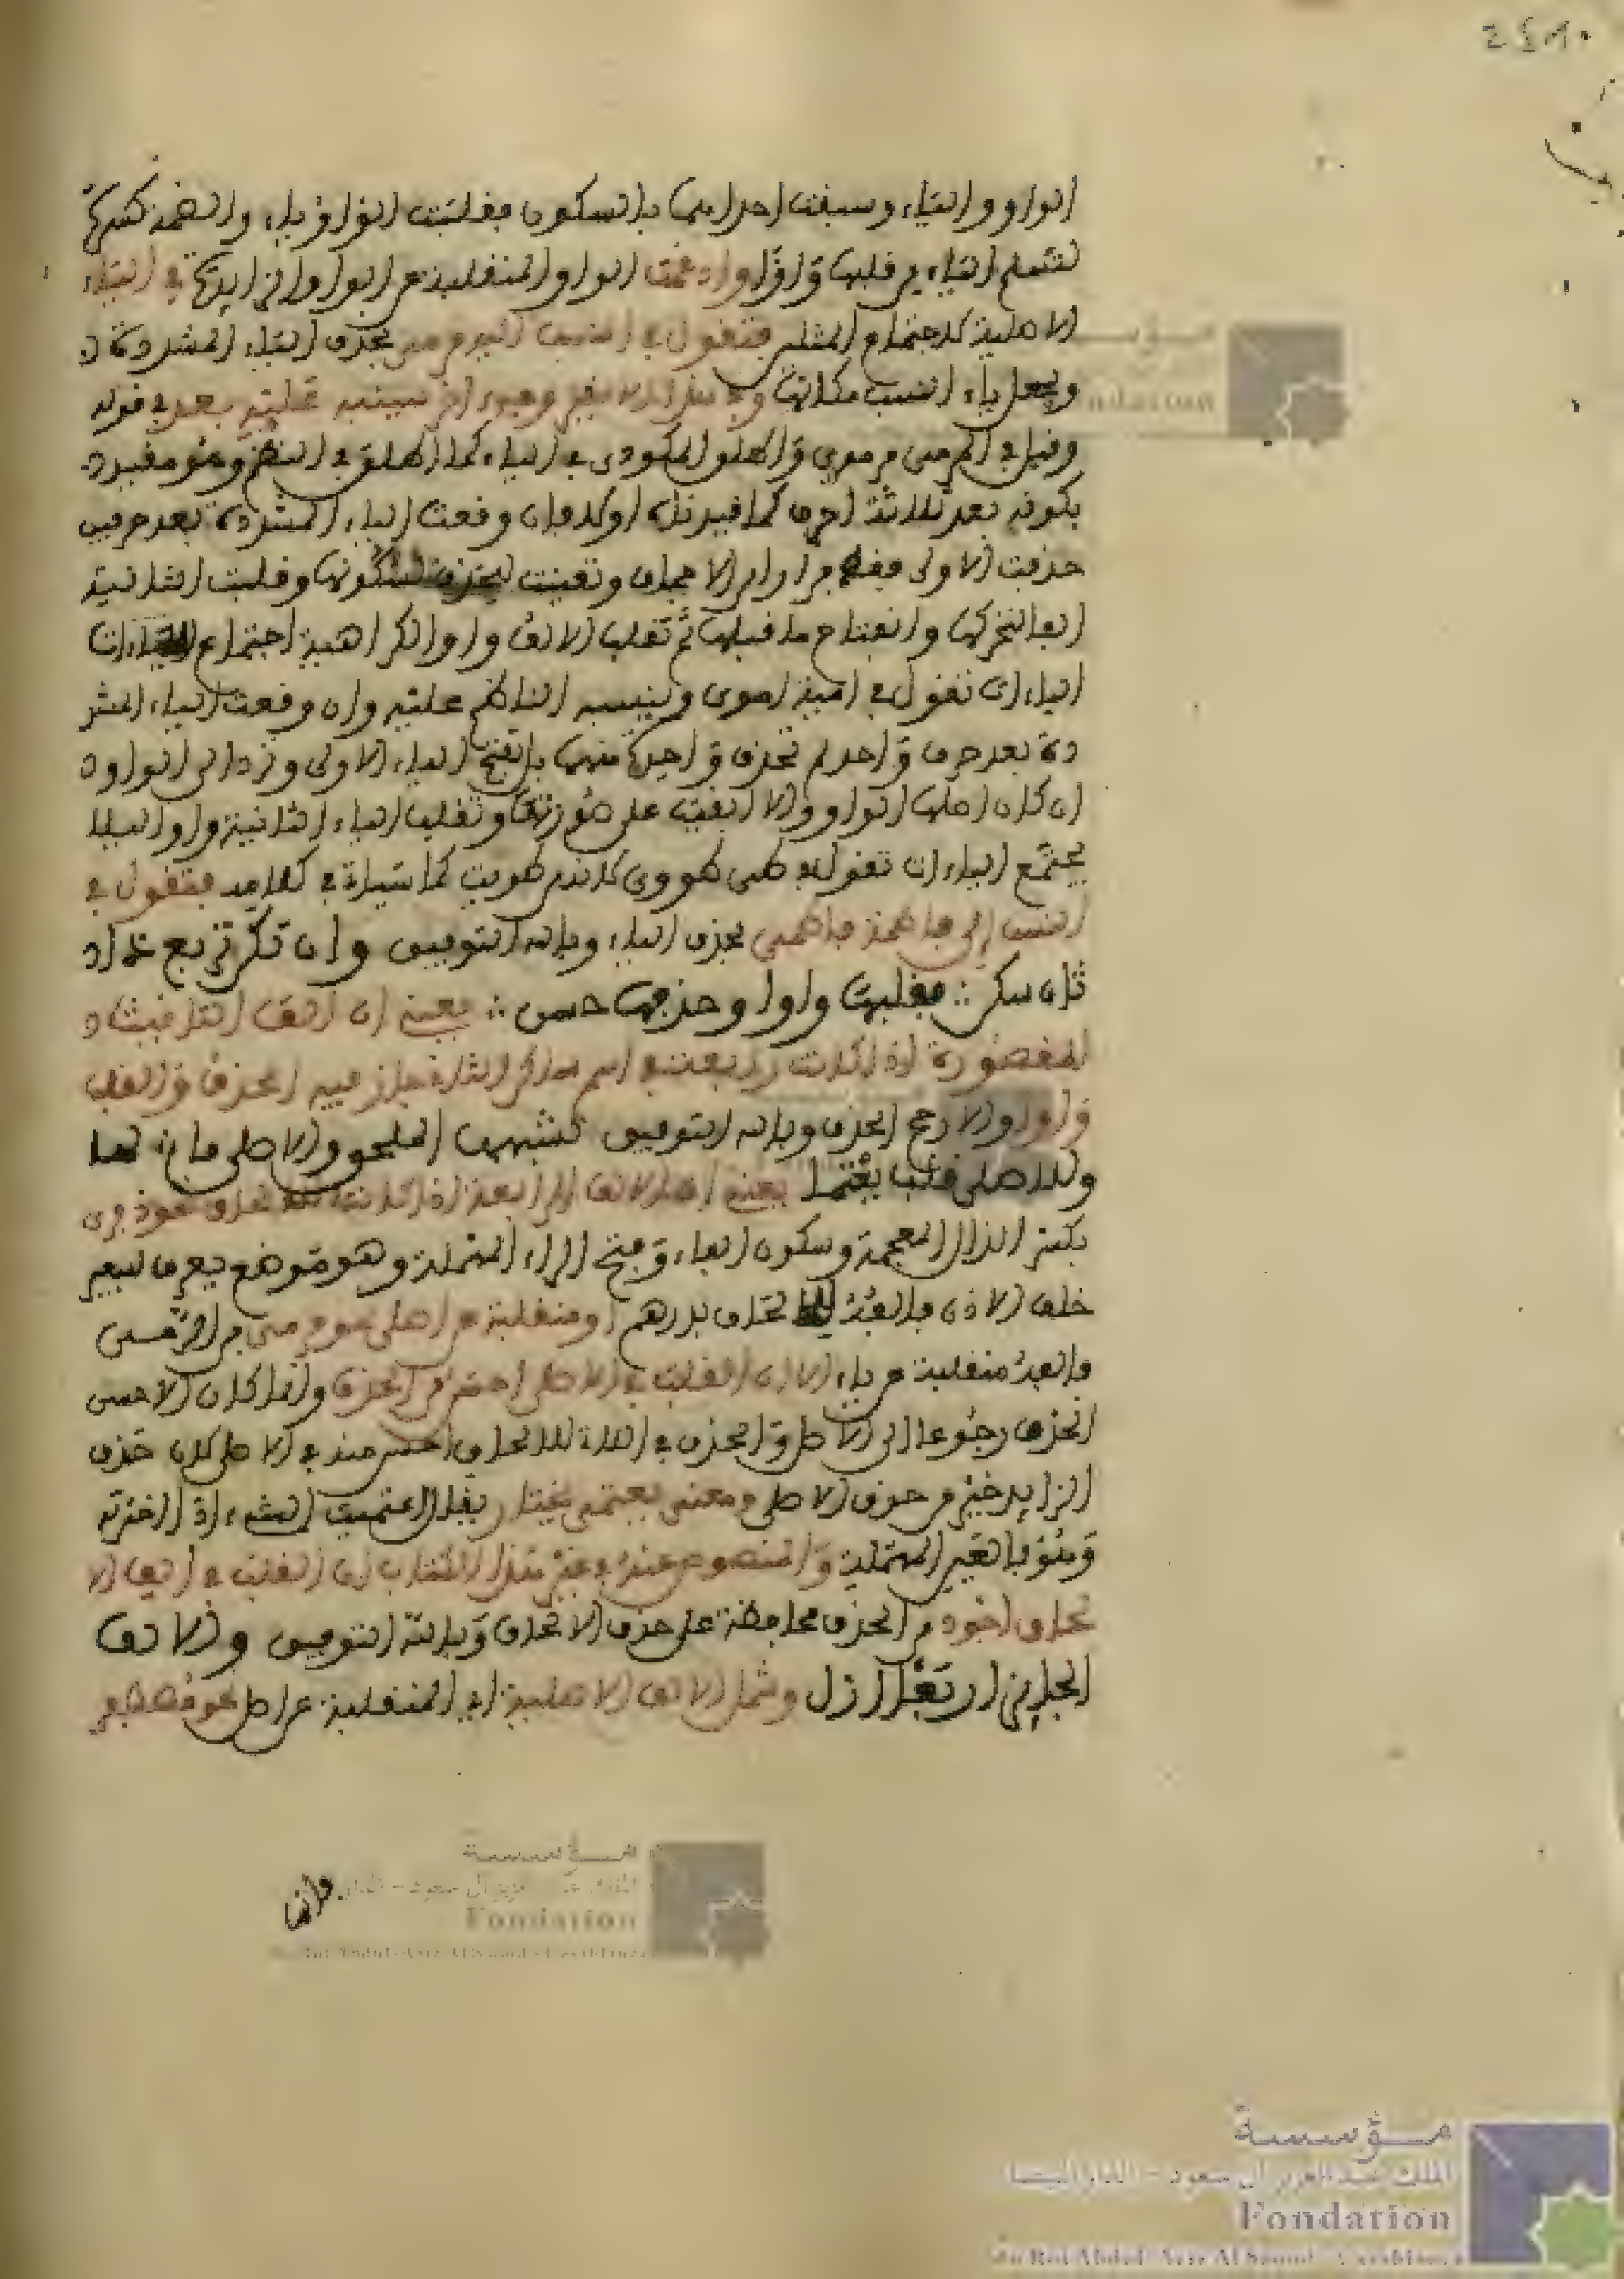 الواو والياء وسبقت احداهما بالسكون فقلبت الواو ياء والضمة كسرة
لتسلم الياء من قلبها واوا وادغمت الواو المنقلبة عن الواو الزايدة في الياء
الاصلية لاجتماع المثلين فتقول في النسب اليه مرمي بحذف الياء المشددة
ويجعل ياء النسب مكانها وفي هذا الاخير وجه اخر سينبه عليه بعد في قوله
وقيل في المرمي مرموي واطلق المكودي في الياء كما اطلق في النظم وهو مقيد
بكونه بعد ثلاثة احرف كما قيدناه اولا فان وقعت الياء المشددة بعد حرفين
حذفت الاولى فقط فرارا من الاجحاف وتعينت للحذف لسكونها وقلبت الثانية
الفا لتحركها وانفتاح ما قبلها ثم تقلب الالف واوا لكراهية اجتماع
الياءات تقول في امية اموي ولينبه الناظم عليه وان وقعت الياء المشد
دة بعد حرف واحد لم تحذف واحدة منهما بل تفتح الياء الاولى وترد الى الواو
ان كان اصلها الواو والا ابقيت على صورتها وتقلب الياء الثانية واوا ليلا
يجتمع الياءات تقول في طي طووي لانه من طويت كما سياتي في كلامه فتقول في
النسب الى فاطمة فاطمي بحذف التاء وبالله التوفيق وان تكن تربع ذا
ثان سكن ∴ فقلبها واوا وحذفها حسن ∴ يعني ان الف التانيث
المقصورة اذا كانت رابعة في اسم ساكن الثاني جاز فيه الحذف والقلب
واوا والارجح الحذف وبالله التوفيق لشبهها الملحق والاصلي ما لها
وللاصلي قلب يعتما يعني ان الالف الرابعة اذا كانت للالحاق نحو ذفرى
بكسر الذال المعجمة وسكون الفاء وفتح الراء المهملة وهو موضع يعرف للبعير
خلف الاذن فالفه للالحاق بدرهم او منقلبة عن اصل نحو مرمى من الرمي
فالفه منقلبة عن ياء الا ان القلب في الاصلي احسن من الحذف وانما كان الاحسن
الحذف رجوعا الى الاصل والحذف في الذي للالحاق احسن منه في الاصلي لان حذف
الزايد خير من حذف الاصلي ومعنى يعتمى يختار يقال اعتميت الشيء اذا اخترته
وهو بالعين المهملة والمنصوص عنه في غير هذا الكتاب ان القلب في الف الا
لحاق اجود من الحذف محافظة على حرف الالحاق وبالله التوفيق والالف
الجايز اربعا ازل وشمل الالف الاصلية اي المنقلبة عن اصل نحو مصطفى
والف
مؤسسة
الملك عبد العزيز آل سعود - الدار البيضاء
Fondation
du Roi Abdul-Aziz Al Saoud - Casablanca